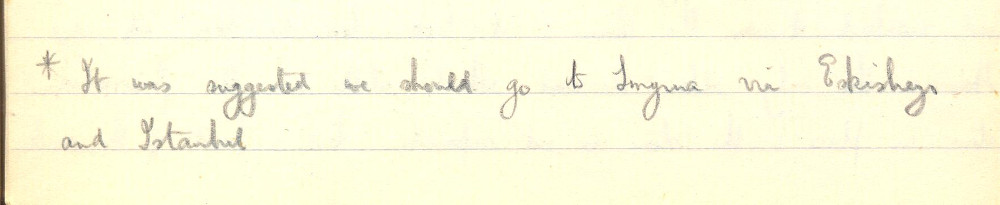 * It was suggested we should go to Smyrna via Eskishehr
and Istanbul